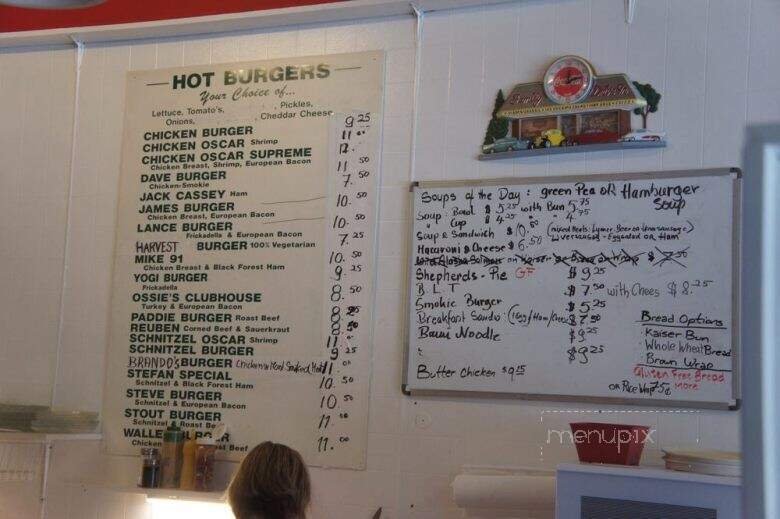 HOT BURGERS
Your Choice of...
Lettuce, Tomato's, Pickles,
Onions, Cheddar Cheese
CHICKEN BURGER 9 25
CHICKEN OSCAR Shrimp 11 00
CHICKEN OSCAR SUPREME 12.
Chicken Breast, Shrimp, European Bacon
DAVE BURGER 11 50
Chicken-Smokie
JACK CASSEY Ham 7. 50
JAMES BURGER 10. 50
Chicken Breast, European Bacon
LANCE BURGER 10. 50
Frickadella & European Bacon
HARVEST BURGER 100% Vegetarian 7. 25
MIKE 91 10. 50
Chicken Breast & Black Forest Ham
YOGI BURGER 9. 25
Frickadella
OSSIE'S CLUBHOUSE 8. 50
Turkey & European Bacon
PADDIE BURGER Roast Beef 8.
REUBEN Corned Beef & Sauerkraut 8. 50
SCHNITZEL OSCAR Shrimp 11.
SCHNITZEL BURGER 9 25
BRANDO'S BURGER 11. 00
STEFAN SPECIAL 10. 50
Schnitzel & Black Forest Ham
STEVE BURGER 10. 50
Schnitzel & European Bacon
STOUT BURGER 11.
Schnitzel & Roast Beef
WALLE BURGER 11. 00
Chicken Roast Beef
Soups of the Day: green Pea OR Hamburger
Soup
Soup: Bowl $ 5.25 with Bun 5.75
" Cup $ 4.25 " " 4.75
Soup & Sandwich $ 10.50
Liversausage - Eggsalad OR Ham
Macaroni & Cheese $ 6.50
Shepherds - Pie GF $ 9.25
B.L.T $ 7.50 with Chees $ 8.25
Smokie Burger $ 5.25
Breakfast Sandw: (1 Egg/Ham/Chees) $ 7.50
Bami Noodle $ 9.25
$ 9.25
Butter Chicken $ 9.25
Bread Options
Kaiser Bun
Whole Wheat Bread
Brown Wrap
Gluten Free Bread
OR Rice Wrap 75¢ more
menupix